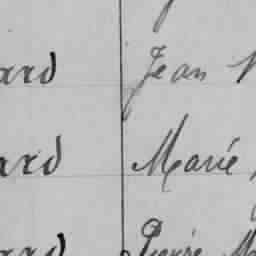 ard Jean
ard Marie
ard Pierre M